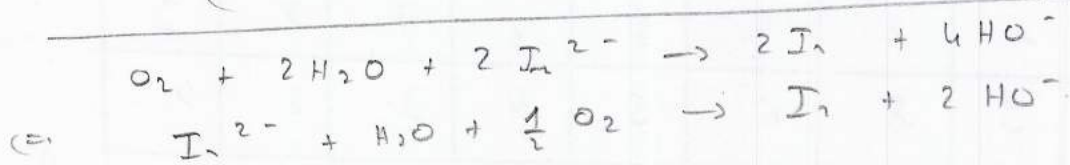 O₂ + 2 H₂O + 2 In²⁻ → 2 In + 4 HO⁻
(=) In²⁻ + H₂O + ½ O₂ → In + 2 HO⁻